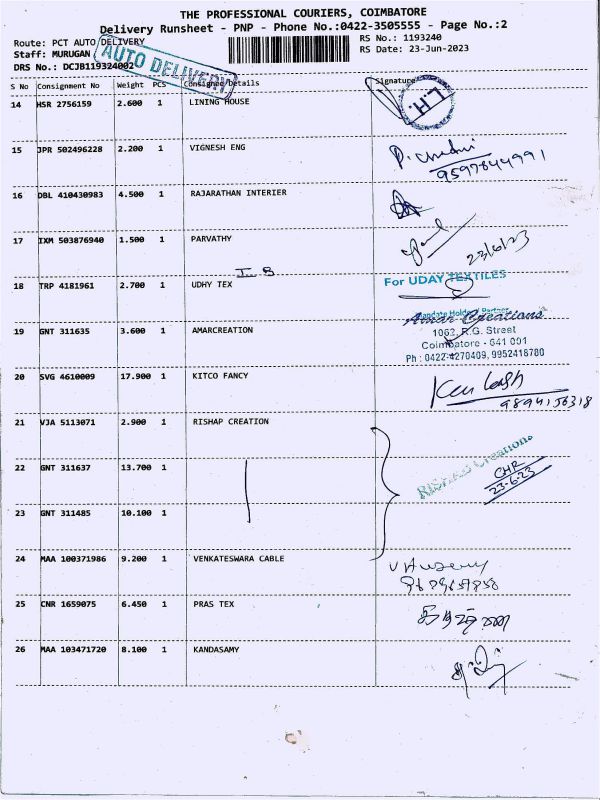 THE PROFESSIONAL COURIERS, COIMBATORE
Delivery Runsheet - PNP - Phone No.:0422-3505555 - Page No.:2
Route: PCT AUTO DELIVERY
RS No.: 1193240
Staff: MURUGAN
RS Date: 23-Jun-2023
DRS No.: DCJB119324002
AUTO DELIVERY
S No Consignment No Weight PCS Consignee Details Signature
14 HSR 2756159 2.600 1 LINING HOUSE
L.H.
15 JPR 502496228 2.200 1 VIGNESH ENG
9597844991
16 DBL 410430983 4.500 1 RAJARATHAN INTERIER
17 IXM 503876940 1.500 1 PARVATHY
23/6/23
18 TRP 4181961 2.700 1 UDHY TEX
For UDAY TEXTILES
19 GNT 311635 3.600 1 AMARCREATION
Creations
1062, R.G. Street
Coimbatore - 641 001
Ph : 0422-4270409, 9952418780
20 SVG 4610009 17.900 1 KITCO FANCY
9894156318
21 VJA 5113071 2.900 1 RISHAP CREATION
22 GNT 311637 13.700 1
RISHAB Creations
CHR
23-6-23
23 GNT 311485 10.100 1
24 MAA 100371986 9.200 1 VENKATESWARA CABLE
25 CNR 1659075 6.450 1 PRAS TEX
26 MAA 103471720 8.100 1 KANDASAMY